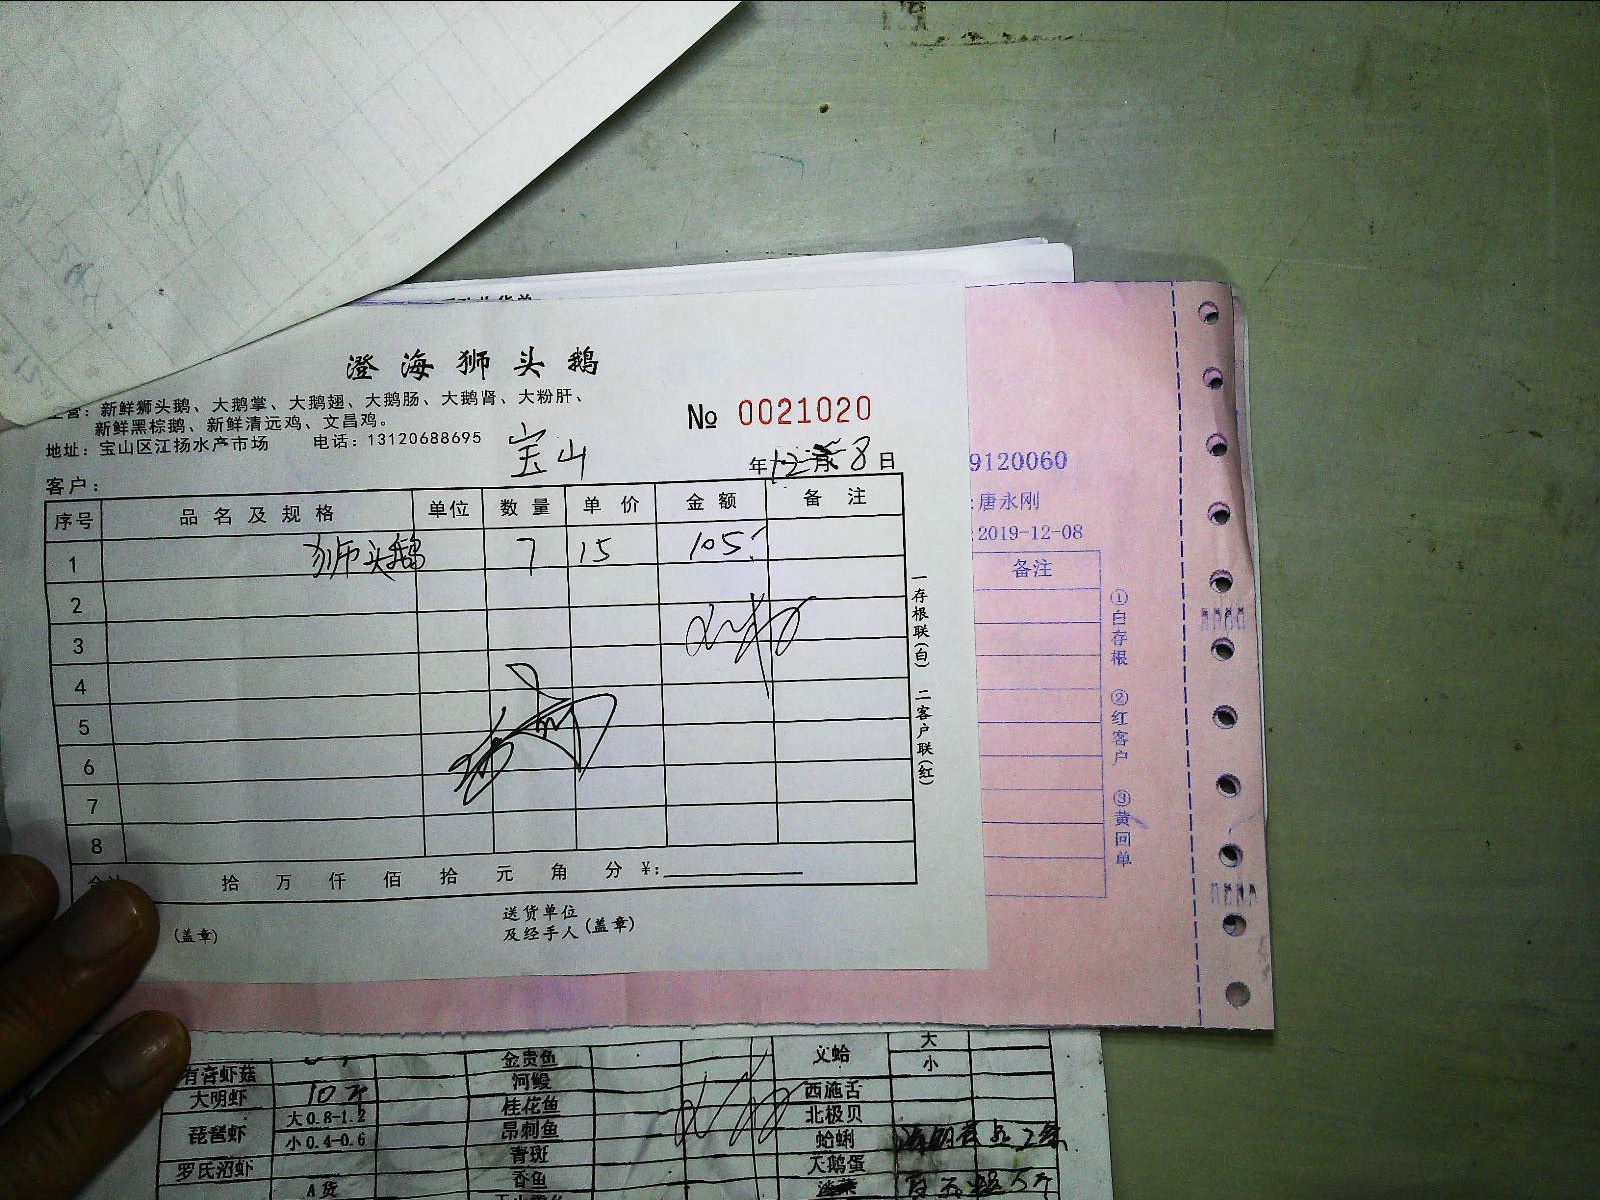 澄海狮头鹅
主营：新鲜狮头鹅、大鹅掌、大鹅翅、大鹅肠、大鹅肾、大粉肝、
新鲜黑棕鹅、新鲜清远鸡、文昌鸡。
地址：宝山区江扬水产市场 电话：13120688695
№ 0021020
客户： 宝山 年12月8日
序号 品名及规格 单位 数量 单价 金额 备注
1 狮头鹅 7 15 105
2
3
4
5
6
7
8
拾 万 仟 佰 拾 元 角 分 ¥:
(盖章)
送货单位
及经手人 (盖章)
一存根联(白) 二客户联(红)
9120060
:唐永刚
:2019-12-08
备注
①白存根 ②红客户 ③黄回单
大
金贵鱼 文蛤 小
有音虾菇 河鳗
大明虾 10斤 桂花鱼 西施舌
琵琶虾 大0.8-1.2 昂刺鱼 北极贝
小0.4-0.6 青斑 蛤蜊
罗氏沼虾 香鱼 天鹅蛋
A货